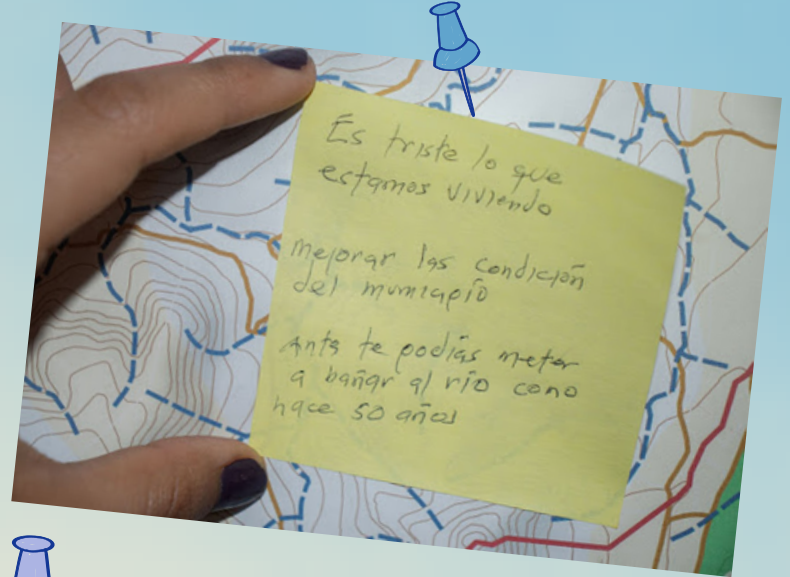 Es triste lo que
estamos viviendo
mejorar las condición
del municipio
Ante te podías meter
a bañar al río como
hace 50 años